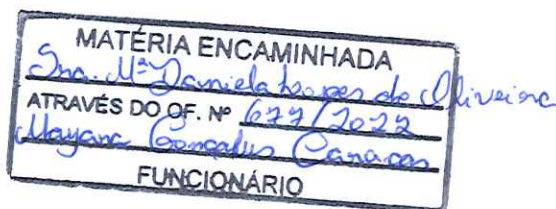 MATÉRIA ENCAMINHADA
Sra. Mª Daniela Lopes de Oliveira
ATRAVÉS DO OF. Nº 677/2022
Mayana Gonçalves Canacas
FUNCIONÁRIO